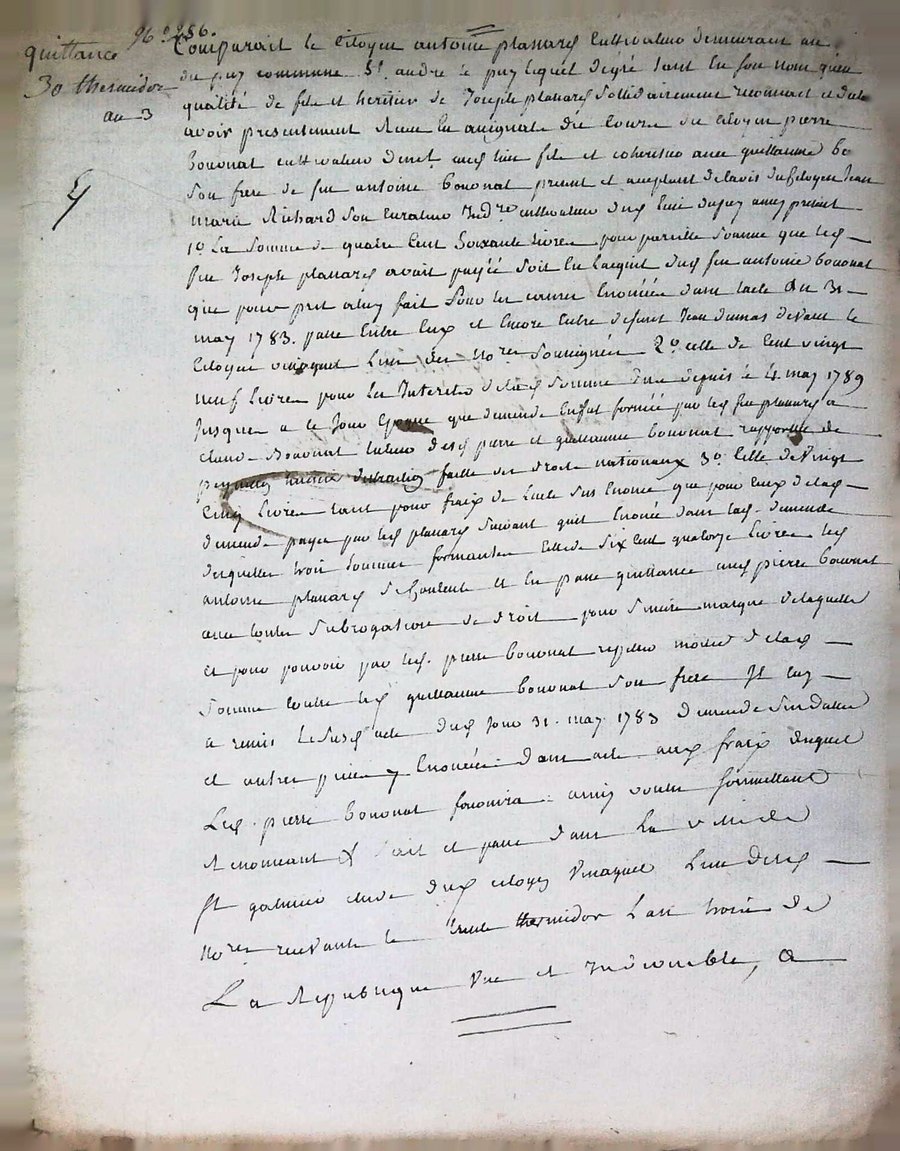 96 256.
quittance
30 thermidor
an 3
Comparait le Citoyen antoine planard Cultivateur demeurant au
du puy commune St. andre le puy lequel degré tant en son nom qu'en
qualité de fils et heritier de Joseph planard solidairement reconnait et declare
avoir presentement Receu en assignats de cours du citoyen pierre
bouonat cultivateur aud lieu fils et coheritier avec guillaume bo
son frere de feu antoine bouonat present et acceptant de lavis du Citoyen Jean
marie Richard son curateur cultivateur dud lieu dupuy aussy present
1o La somme de quatre cent soixante livres pour pareille somme que led
feu Joseph planard avait payée soit en lacquit dud feu antoine bouonat
que pour pret a luy fait sous les enoncée dans lacte du 31
may 1783. passé entre eux et encore entre defunt Jean dumas devant le
Citoyen vinoquel l'un des nores soussignés 2o celle de cent vingt
neuf livres pour les Interets de lad somme depuis le 4 may 1789
Jusques a ce Jour que demande formée par led feu planard a
claude bouonat tuteur desd pierre et guillaume bouonat
faitte des droits nationaux 3o celle de vingt
cinq livres tant pour frais de lacte sus enoncé que pour ceux de lad
demande payés par led planard suivant quil enoncé dans lad. demande
desquelles trois sommes formantes celle de six cent quatorze livres led
antoine planard se contente et en passe quittance aud pierre bouonat
avec toutte subrogation de droit pour sincere marque de laquelle
et pour pouvoir par led. pierre bouonat repeter moitié de lad
somme contre led guillaume bouonat son frere Il luy
a remis le susd acte dud Jour 31. may 1783 demande
et autres pieces y enoncées dont acte aux frais duquel
Led. pierre bouonat fournira ainsy voulu
Renonceant & fait et passé dans la ville de
St galmier etude dud citoyen vinoquel l'un desd
nores recevants le trente thermidor L'an trois de
La Republique Une et Indivisible, a